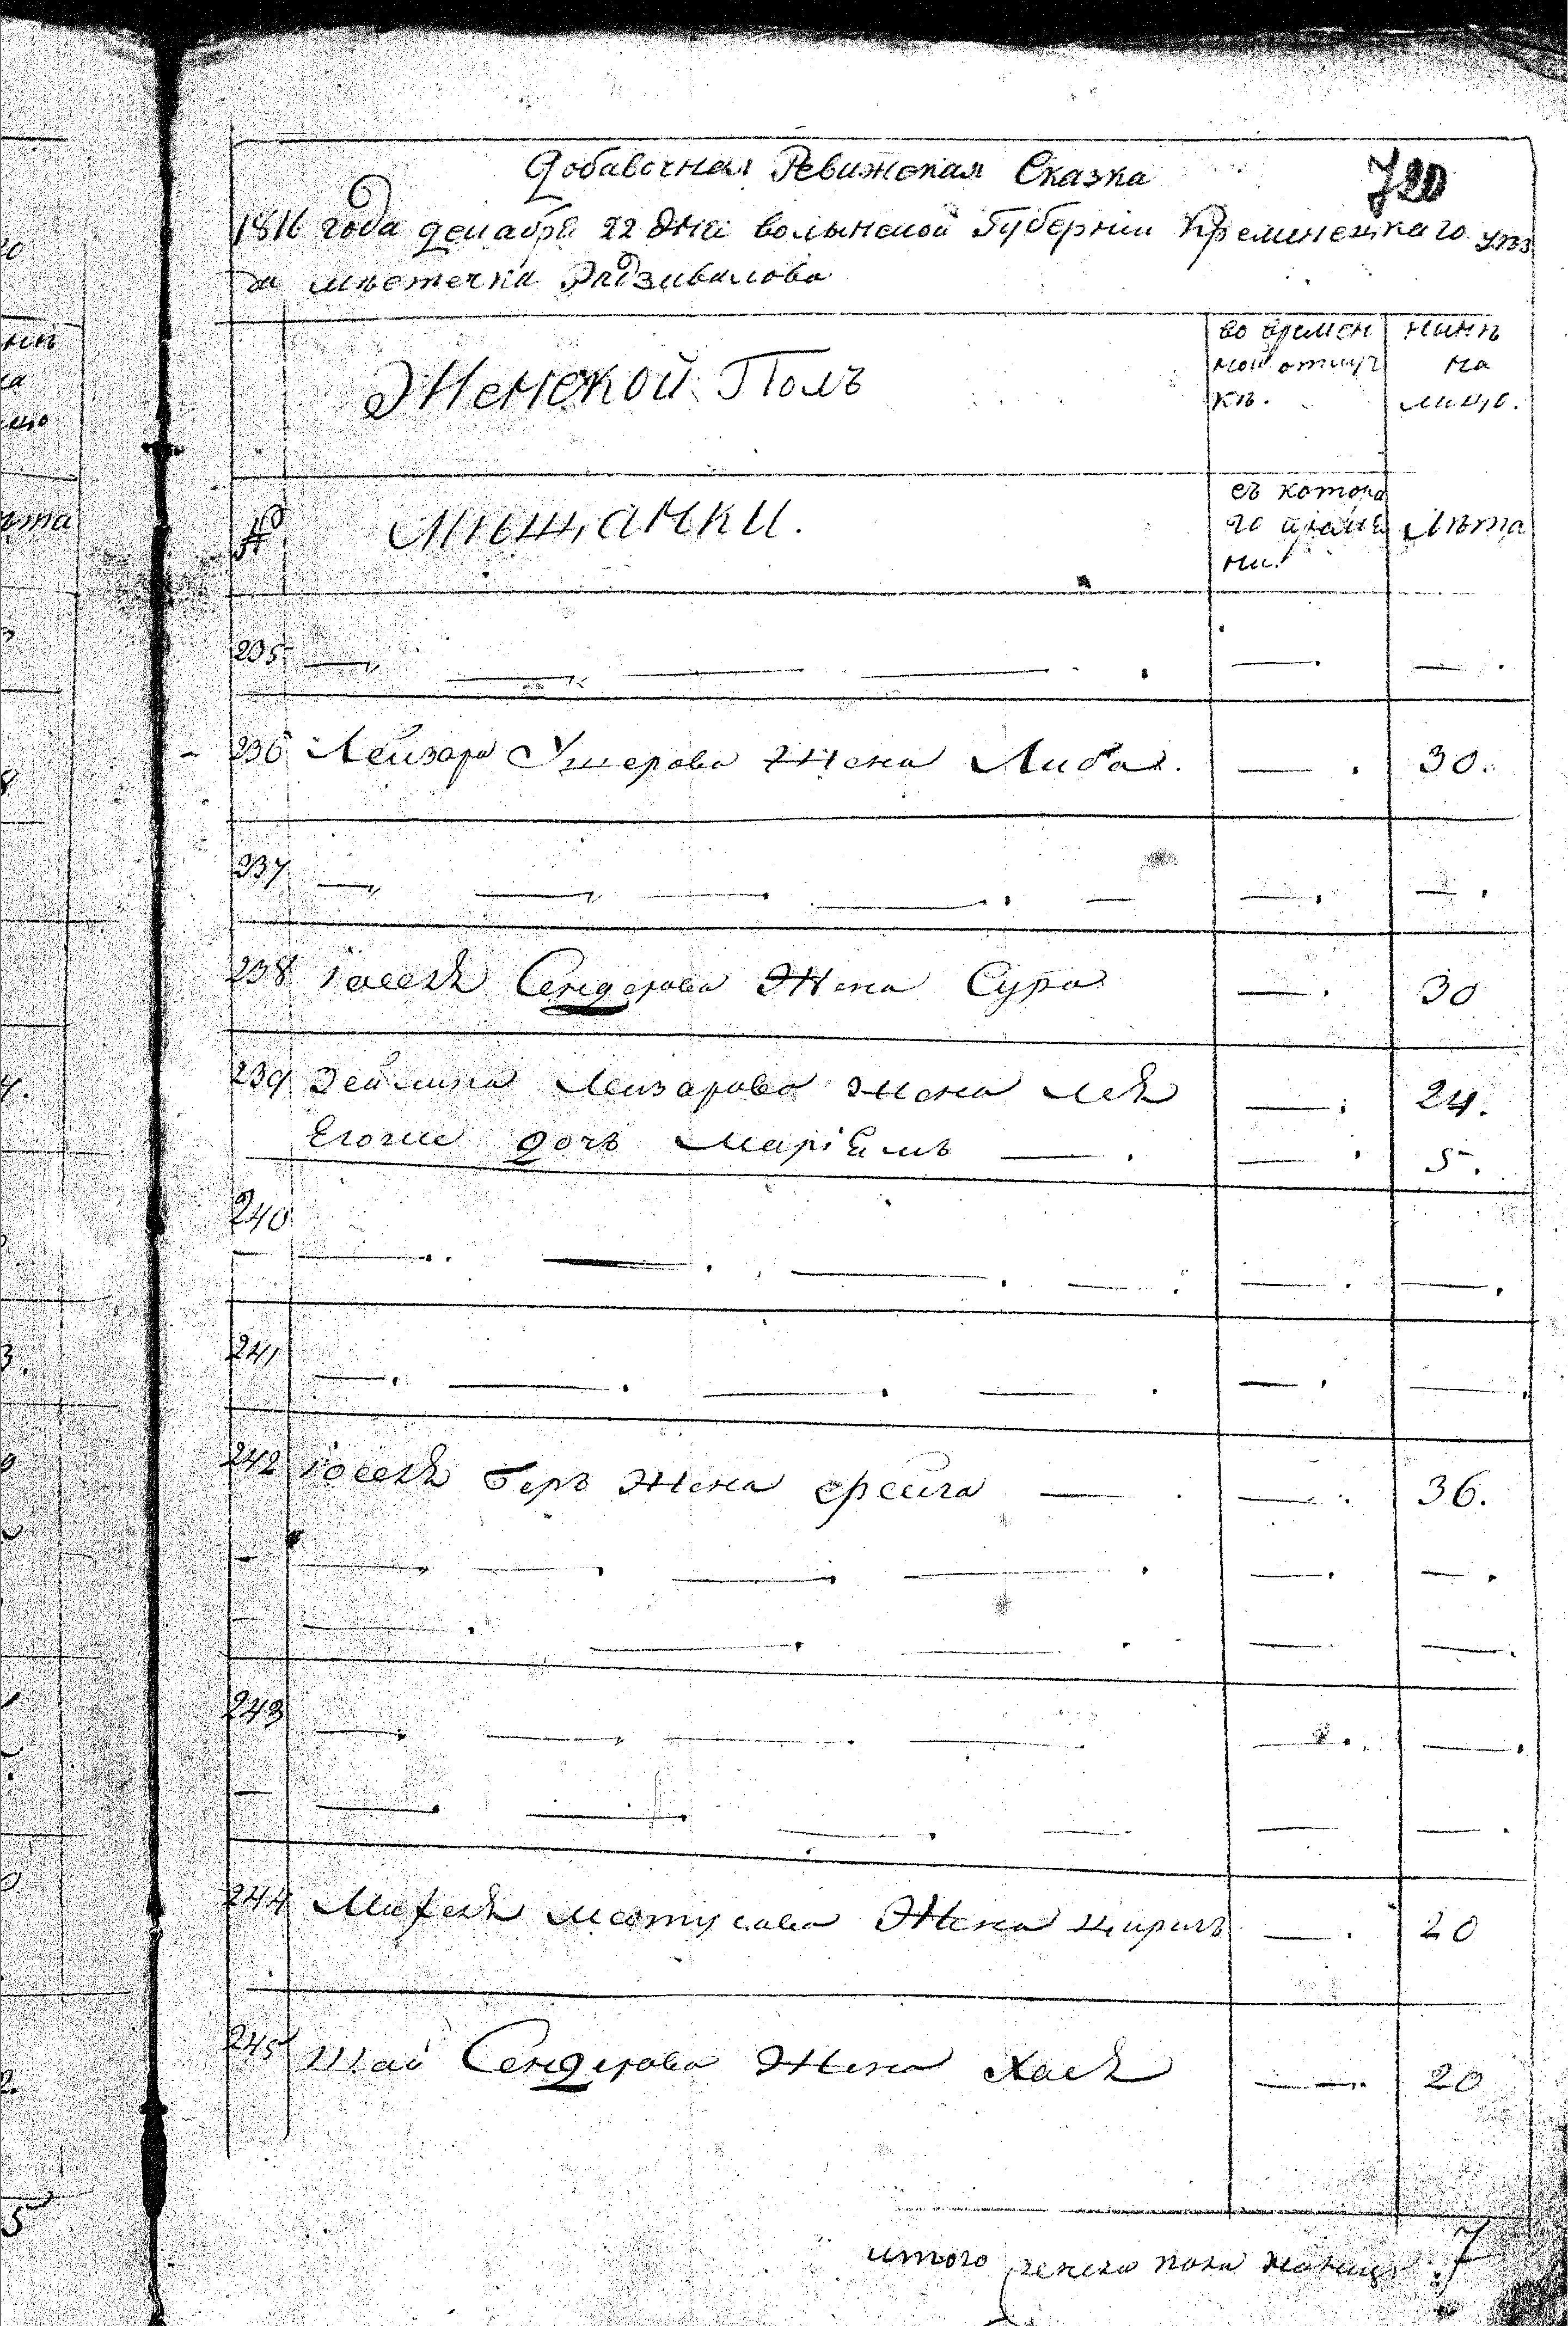 Добавочная Ревижская Сказка
720
1816 года декабря 22 дня волынской Губернии Кременецкаго уѣз
да мѣстечка Радзивилова
Женской Полъ
во времен
ной отлуч
кѣ.
нинѣ
на
лицо.
№
Мѣщанки.
съ котора
го времѣ
ни.
Лѣта
235
236 Лейзора Ушерова Жена Либа. — . 30.
237
238 Іосея Сендерова Жена Сура — . 30
239 Зейлика Лейзорова жена Лея — . 24.
Егоже дочъ Маріемъ — . — . 5.
240
241
242 Іосея Беръ Жена — . — . 36.
243
244 Мотусова Жена — . 20
245 Шаи Сендерова Жена Хая — . 20
итого женска пола 7